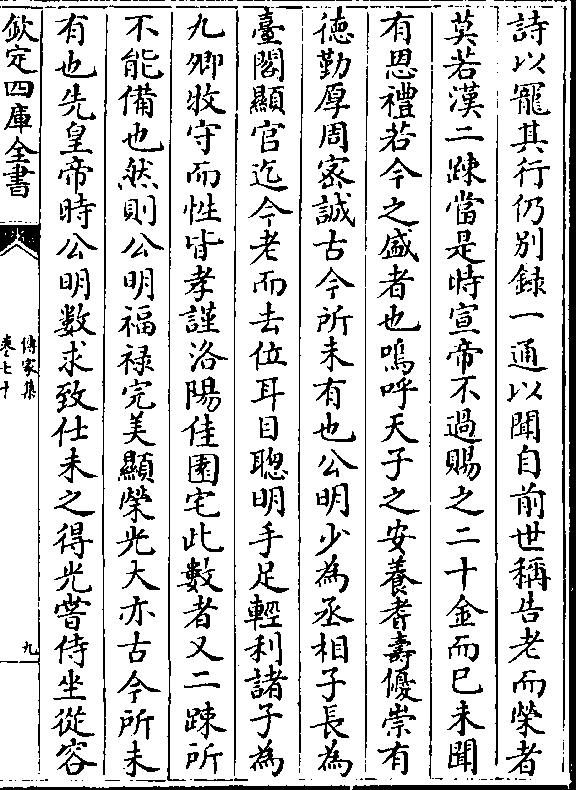 詩以寵其行仍别錄一通以聞自前世稱告老而榮者
莫若漢二踈當是時宣帝不過賜之二十金而已未聞
有恩禮若今之盛者也嗚呼天子之安養耆壽優崇有
徳勤厚周宻誠古今所未有也公明少為丞相子長為
臺閣顯官迄今老而去位耳目聰明手足輕利諸子為
九卿牧守而性皆孝謹洛陽佳園宅此數者又二踈所
不能備也然則公明福禄完美顯榮光大亦古今所未
有也先皇帝時公明數求致仕未之得光嘗侍坐從容
欽定四庫全書
傳家集
卷七十
九